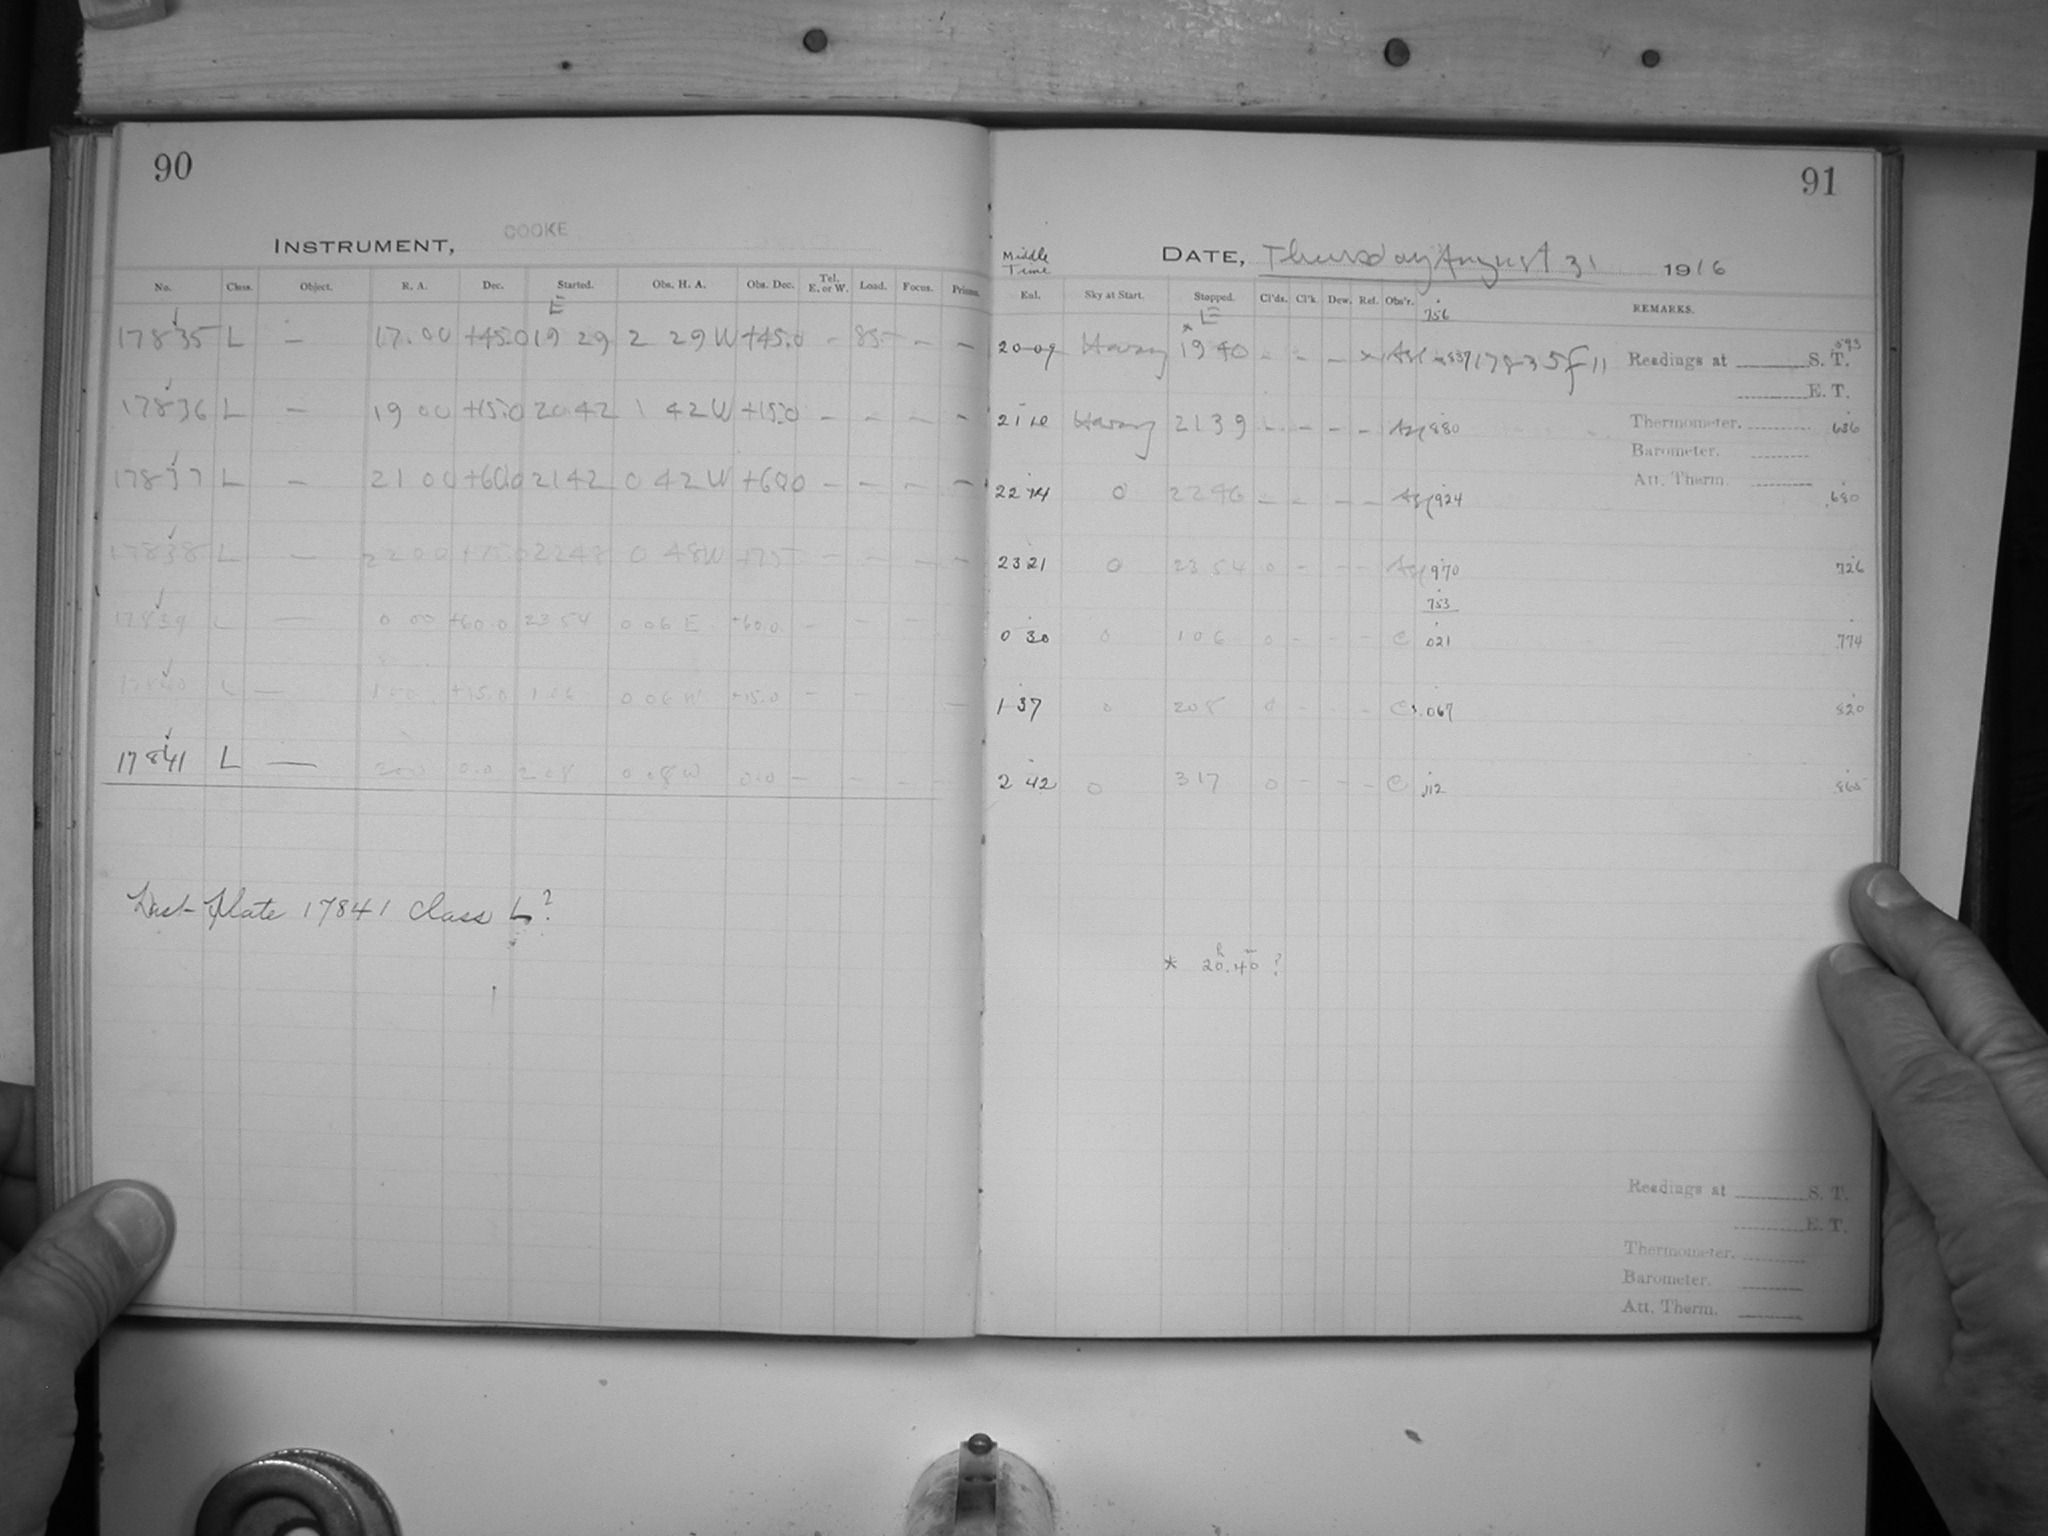 90
INSTRUMENT, COOKE
No. Class. Object. R. A. Dec. Started. Obs. H. A. Obs. Dec. Tel. E. or W. Load. Focus. Prisms.
E
17835 L — 17.00 +45.0 19 29 2 29 W +45.0 - 85 - —
17836 L — 19 00 +15.0 20 42 1 42 W +15.0 - - - -
17837 L — 21 00 +60.0 21 42 0 42 W +60.0 - - - -
17838 L — 22 00 +75.0 22 48 0 48 W +75 - - - -
17839 L — 0 00 +60.0 23 54 0 06 E +60.0 - - -
17840 L — 1 00 +15.0 1 06 0 06 W +15.0 - - -
17841 L — 2 00 0.0 2 08 0 08 W 0.0 - - -
Last plate 17841 class L?
91
Middle Time
DATE, Thursday August 31 1916
Exl. Sky at Start. Stopped. Cl'ds. Cl'k. Dew. Ref. Obs'r. REMARKS.
E 756
20 09 Hazy * 19 40 - - - x 837 17835 f 11 593
21 10 Hazy 21 39 - - - - 880 636
22 14 0 22 46 - - - - 924 680
23 21 0 23 54 0 - - - 970 726
753
0 30 0 1 06 0 - - - C 021 774
1 37 0 2 08 0 - - - C .067 820
2 42 0 3 17 0 - - - C .112 865
Readings at S. T.
E. T.
Thermometer.
Barometer.
Att. Therm.
* 20h.40m ?
Readings at S. T.
E. T.
Thermometer.
Barometer.
Att. Therm.